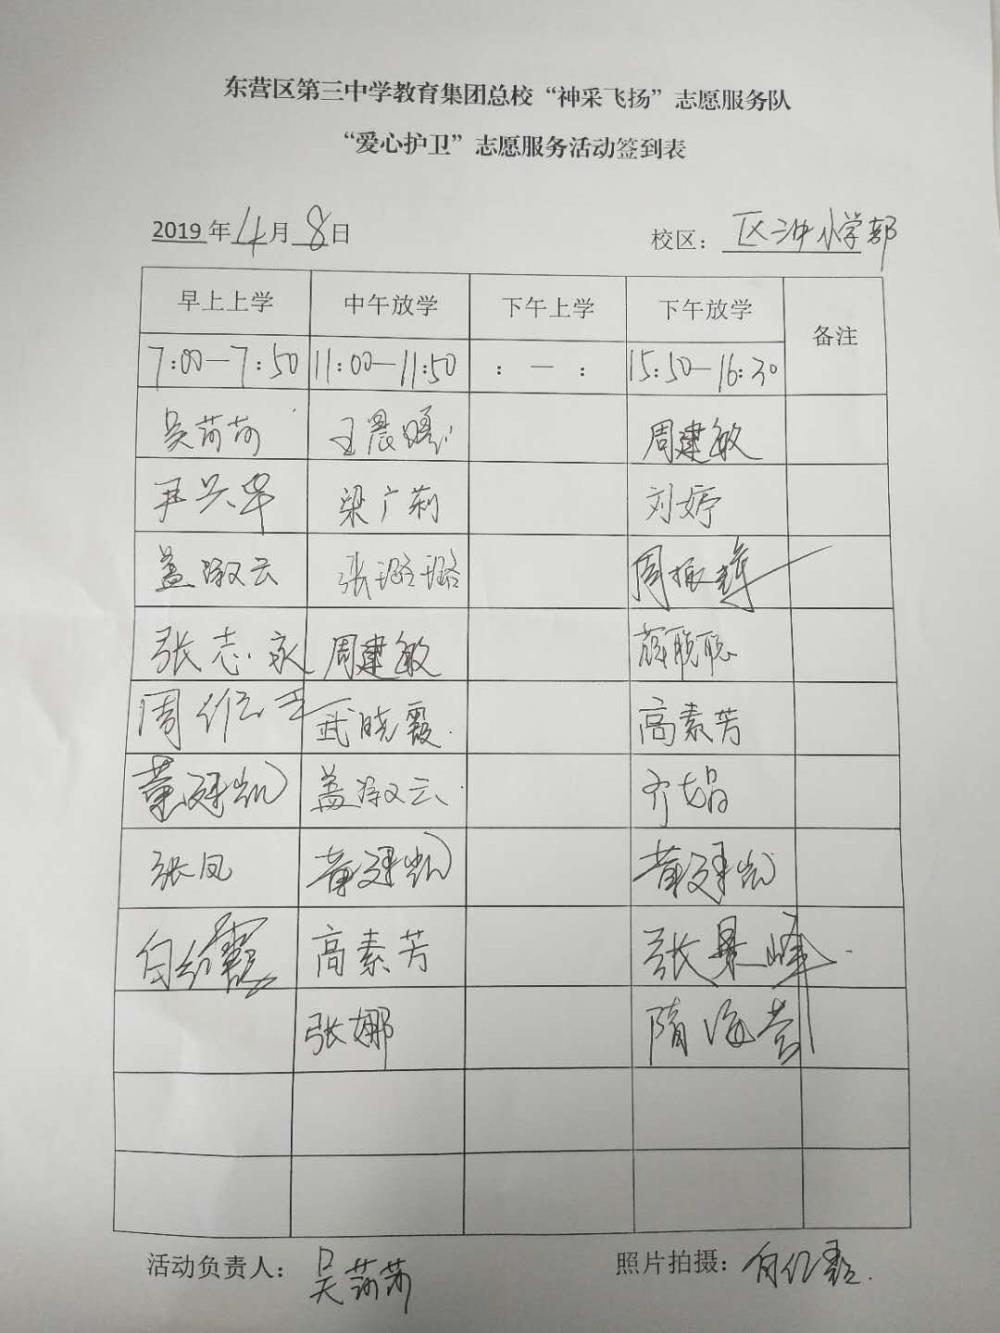 东营区第三中学教育集团总校“神采飞扬”志愿服务队
“爱心护卫”志愿服务活动签到表
2019年4月8日 校区：区三中小学部
早上上学 中午放学 下午上学 下午放学 备注
7:00—7:50 11:00—11:50 : — : 15:50—16:30
吴莎莎 王晨曦 周建敏
尹兴华 梁广莉 刘婷
盖淑云 张璐璐 周振
张志永 周建敏 薛聪聪
周 武晓霞 高素芳
董建凯 盖淑云 齐
张凤 董建凯 董建凯
白红霞 高素芳 张景峰
张娜 隋海
活动负责人：吴莎莎 照片拍摄：白红霞